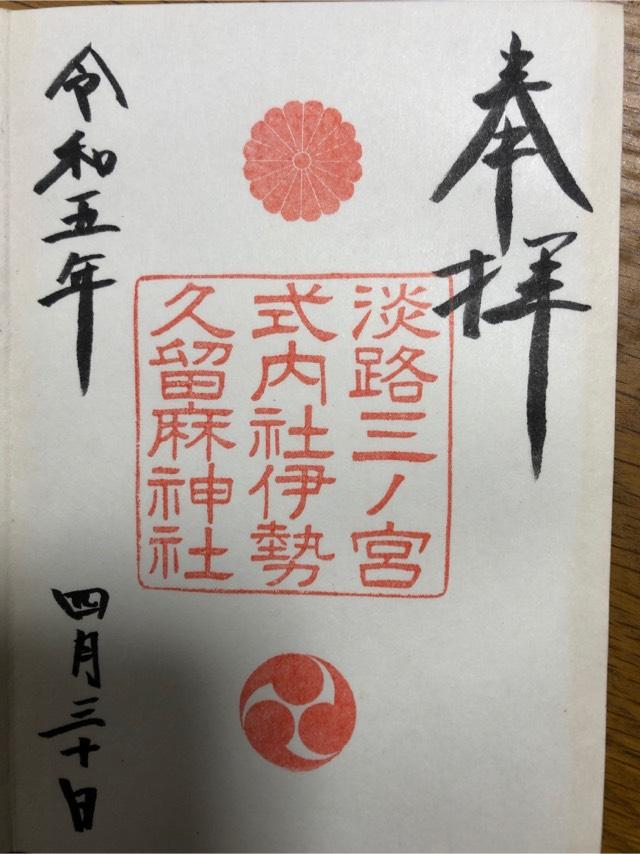 奉拝
淡路三ノ宮
式内社伊勢
久留麻神社
令和五年
四月三十日